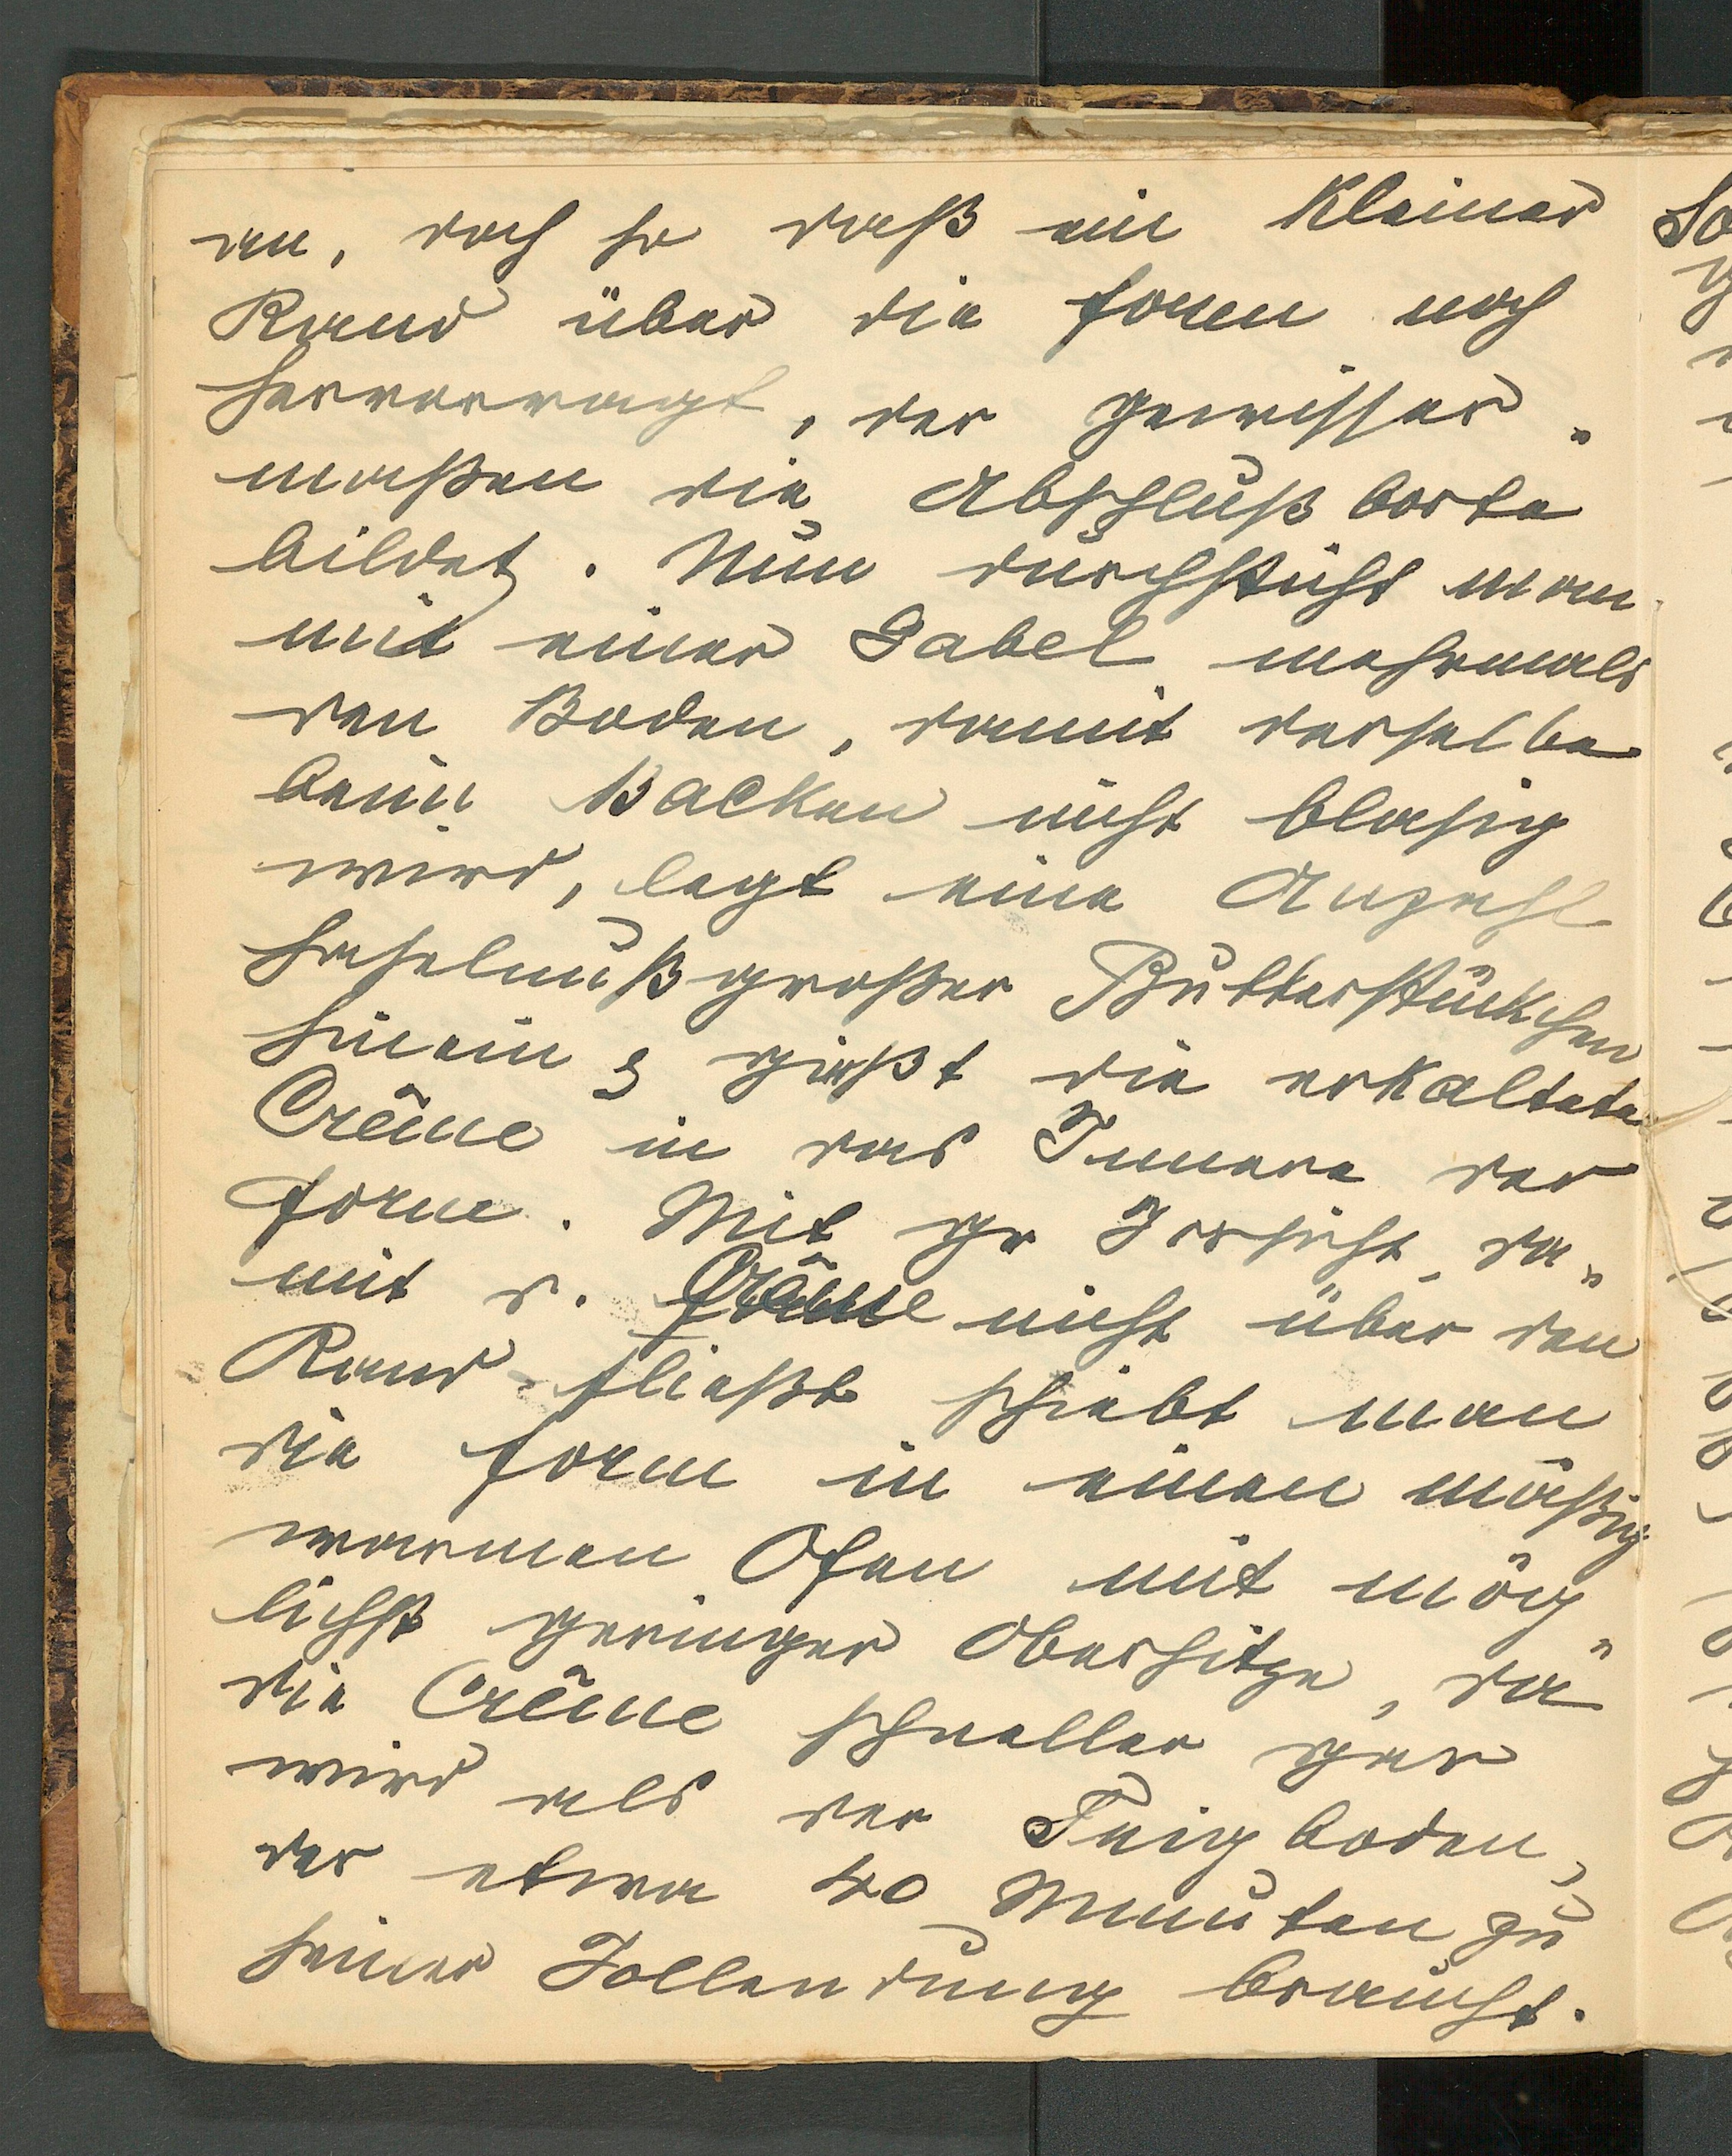 an, doch so daß ein kleiner
Rand über die Form noch
hervorragt, der gewisser„
maßen die Abschlußborte
bildet. Nun durchsticht man
mit einer Gabel mehrmals
den Boden, damit derselbe
beim Backen nicht blasig
wird, legt eine Anzahl
haselnußgroßer Butterstückchen
hinein & gießt die erkaltete
Crême in das Innere der
Form. Mit gr Vorsicht da„
mit d. Crême nicht über den
Rand fließt schiebt man
die Form in einen mäßig
warmen Ofen mit mög„
lichst geringer Oberhitze, da
die Crême schneller gar
wird als der Teigboden,
der etwa 40 Minuten zu
seiner Vollendung braucht.